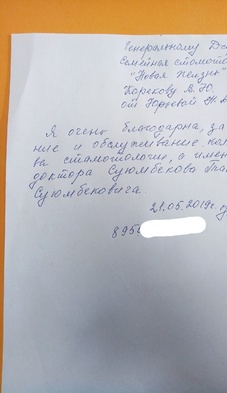 Генеральному
Семейная стомато
"Новая жизнь"
Карекову В.Ю.
от Юрьевой Ж.А
Я очень благодарна, за
ние и обслуживание пол
ва стоматологии, а имен
доктора Суюмбеково
Суюмбековича.
21.05.2019г.
895